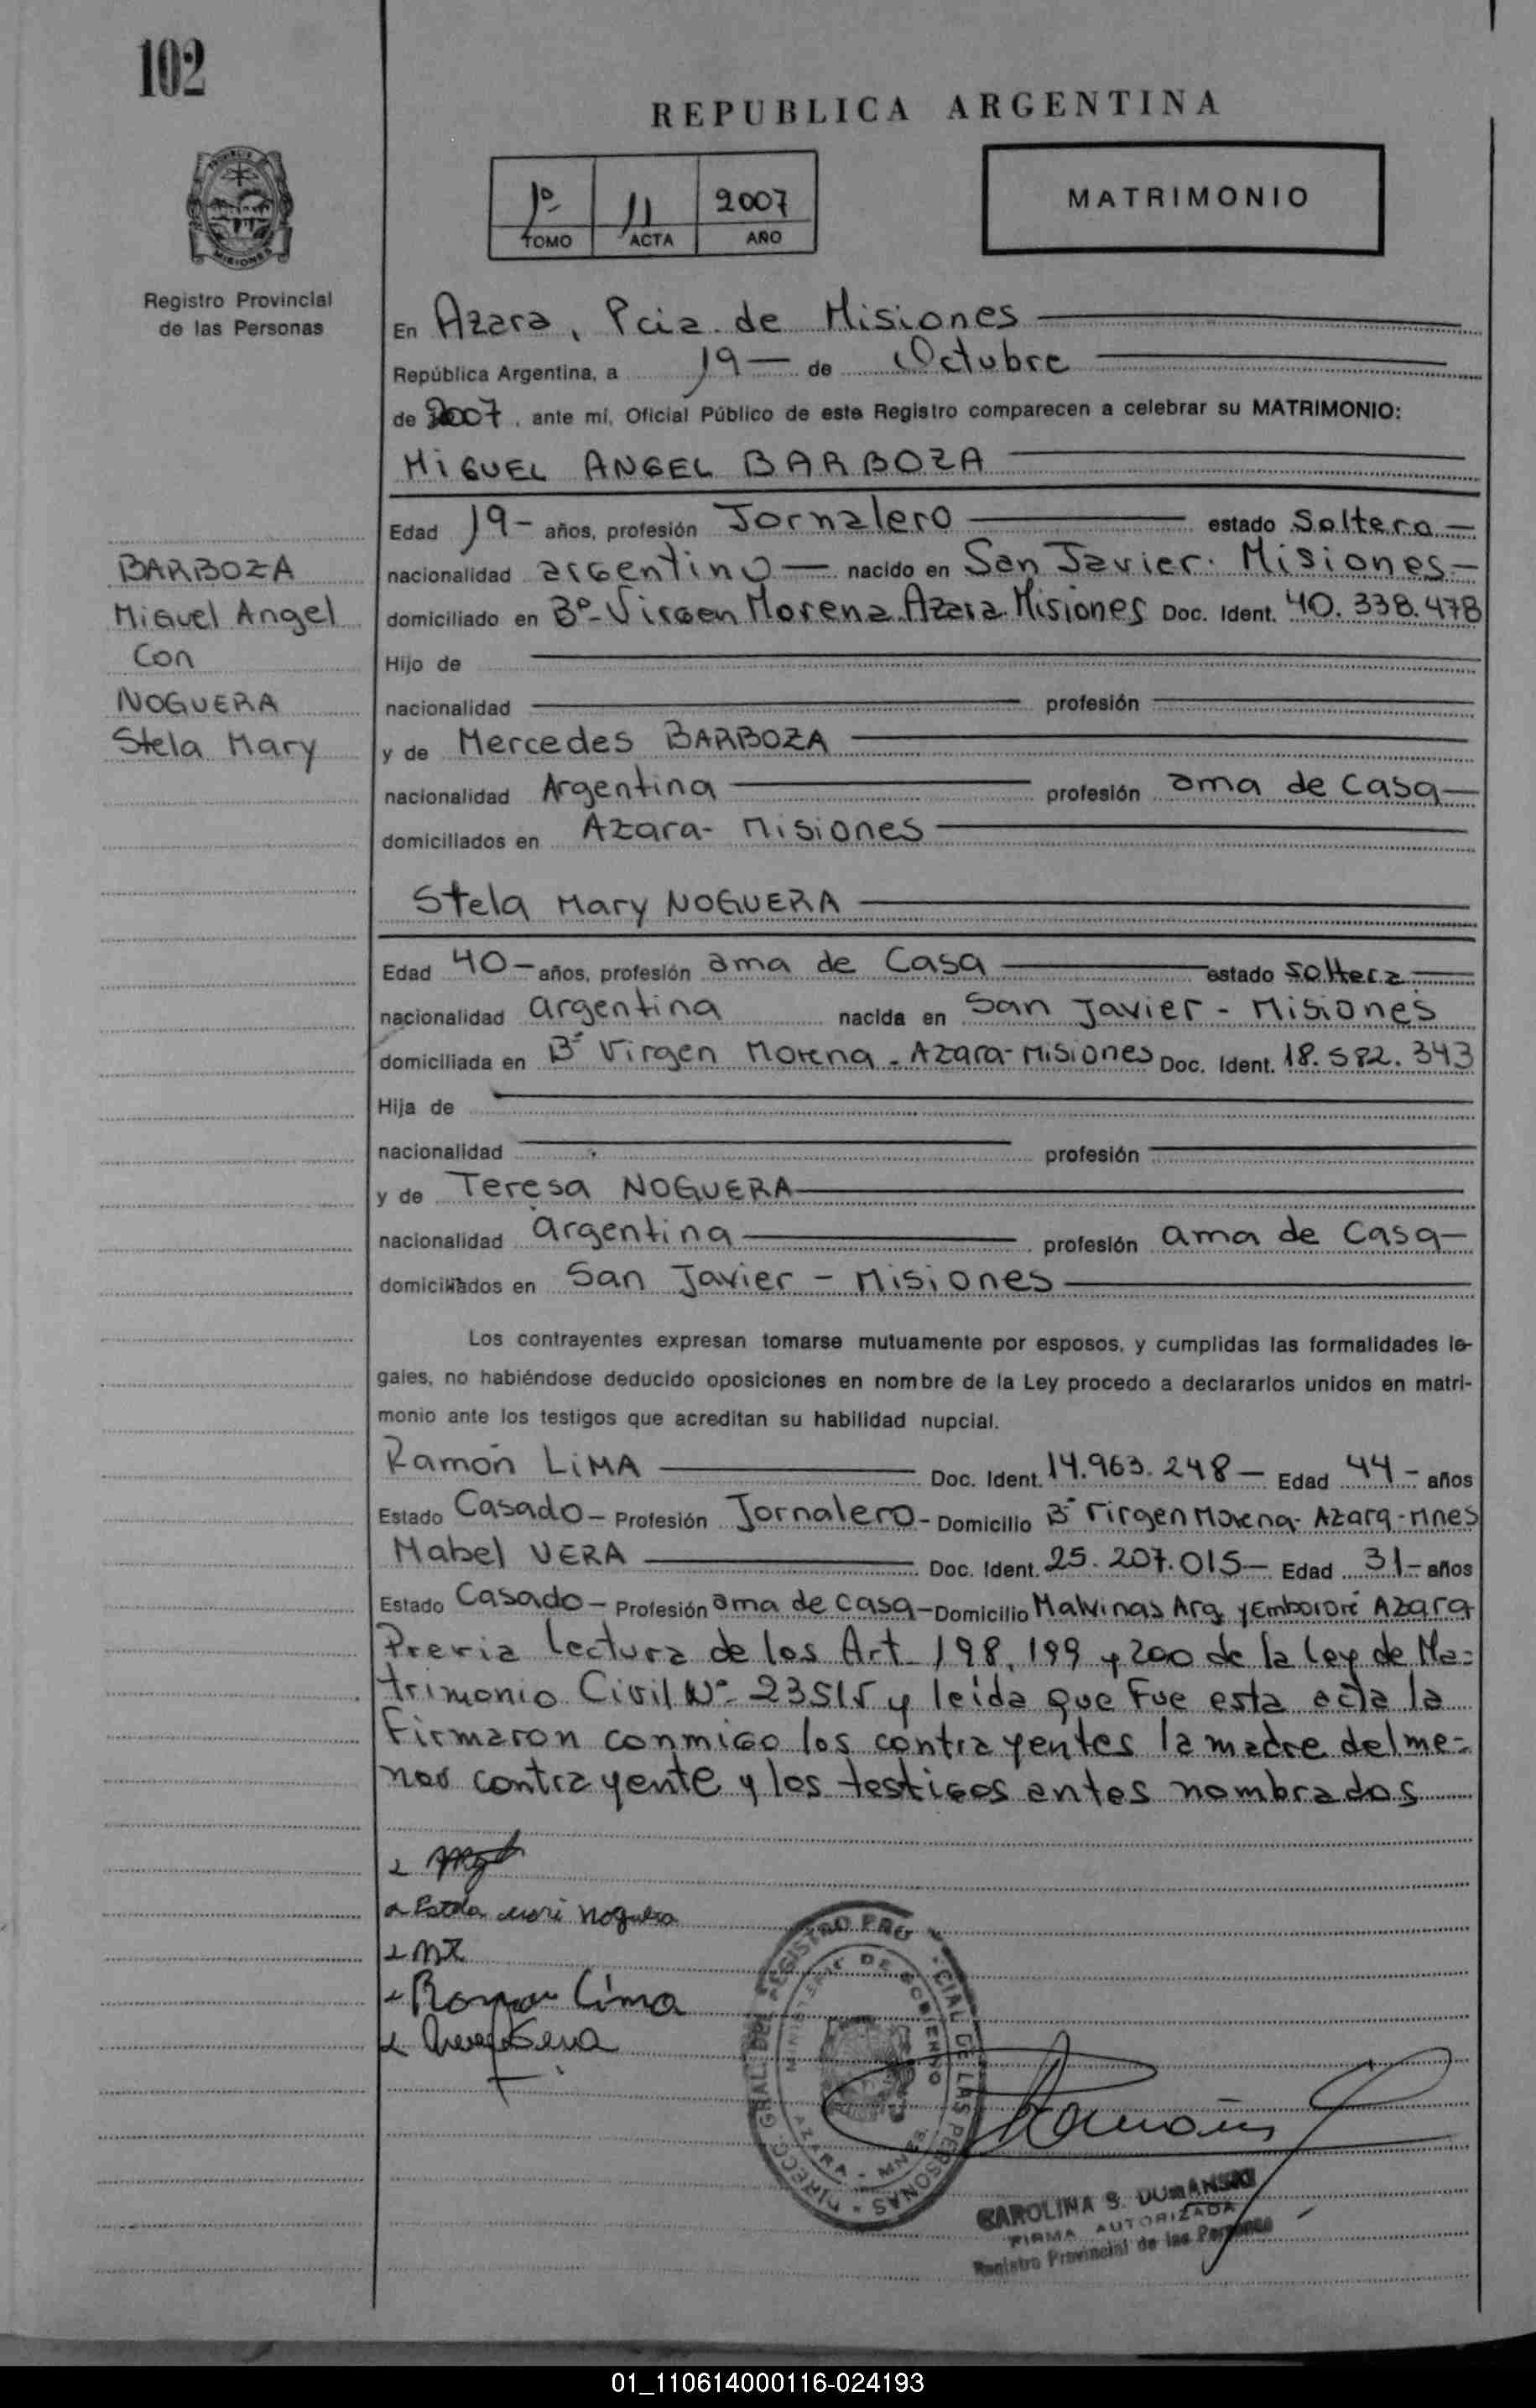 102
REPUBLICA ARGENTINA
1º 11 2007
TOMO ACTA AÑO
MATRIMONIO
Registro Provincial
de las Personas
En Azara, Pcia. de Misiones
República Argentina, a 19 de Octubre
de 2007, ante mí, Oficial Público de este Registro comparecen a celebrar su MATRIMONIO:
MIGUEL ANGEL BARBOZA
Edad 19 - años, profesión Jornalero estado Soltero
BARBOZA
Miguel Angel
Con
NOGUERA
Stela Mary
nacionalidad argentino nacido en San Javier. Misiones
domiciliado en Bº Virgen Morena Azara Misiones Doc. Ident. 40.338.478
Hijo de
nacionalidad profesión
y de Mercedes BARBOZA
nacionalidad Argentina profesión ama de Casa
domiciliados en Azara - Misiones
Stela Mary NOGUERA
Edad 40 - años, profesión ama de Casa estado Soltera
nacionalidad argentina nacida en San Javier - Misiones
domiciliada en Bº Virgen Morena - Azara - Misiones Doc. Ident. 18.582.343
Hija de
nacionalidad profesión
y de Teresa NOGUERA
nacionalidad argentina profesión ama de Casa
domiciliados en San Javier - Misiones
Los contrayentes expresan tomarse mutuamente por esposos, y cumplidas las formalidades le-
gales, no habiéndose deducido oposiciones en nombre de la Ley procedo a declararlos unidos en matri-
monio ante los testigos que acreditan su habilidad nupcial.
Ramón LIMA Doc. Ident. 14.963.248 - Edad 44 - años
Estado Casado - Profesión Jornalero - Domicilio Bº Virgen Morena - Azara - Mnes
Mabel VERA Doc. Ident. 25.207.015 - Edad 31 - años
Estado Casado - Profesión ama de casa - Domicilio Malvinas Arg. y Embororé Azara
Previa lectura de los Art. 198, 199 y 200 de la Ley de Ma=
trimonio Civil Nº 23515 y leída que fue esta acta la
firmaron conmigo los contrayentes la madre del me=
nor contrayente y los testigos antes nombrados
Noguera
Lima
DIRECC. GRAL. DEL REGISTRO PROVINCIAL DE LAS PERSONAS
MINISTERIO DE GOBIERNO
AZARA - MNES
CAROLINA S. DUMANSKI
FIRMA AUTORIZADA
Registro Provincial de las Personas
01_110614000116-024193